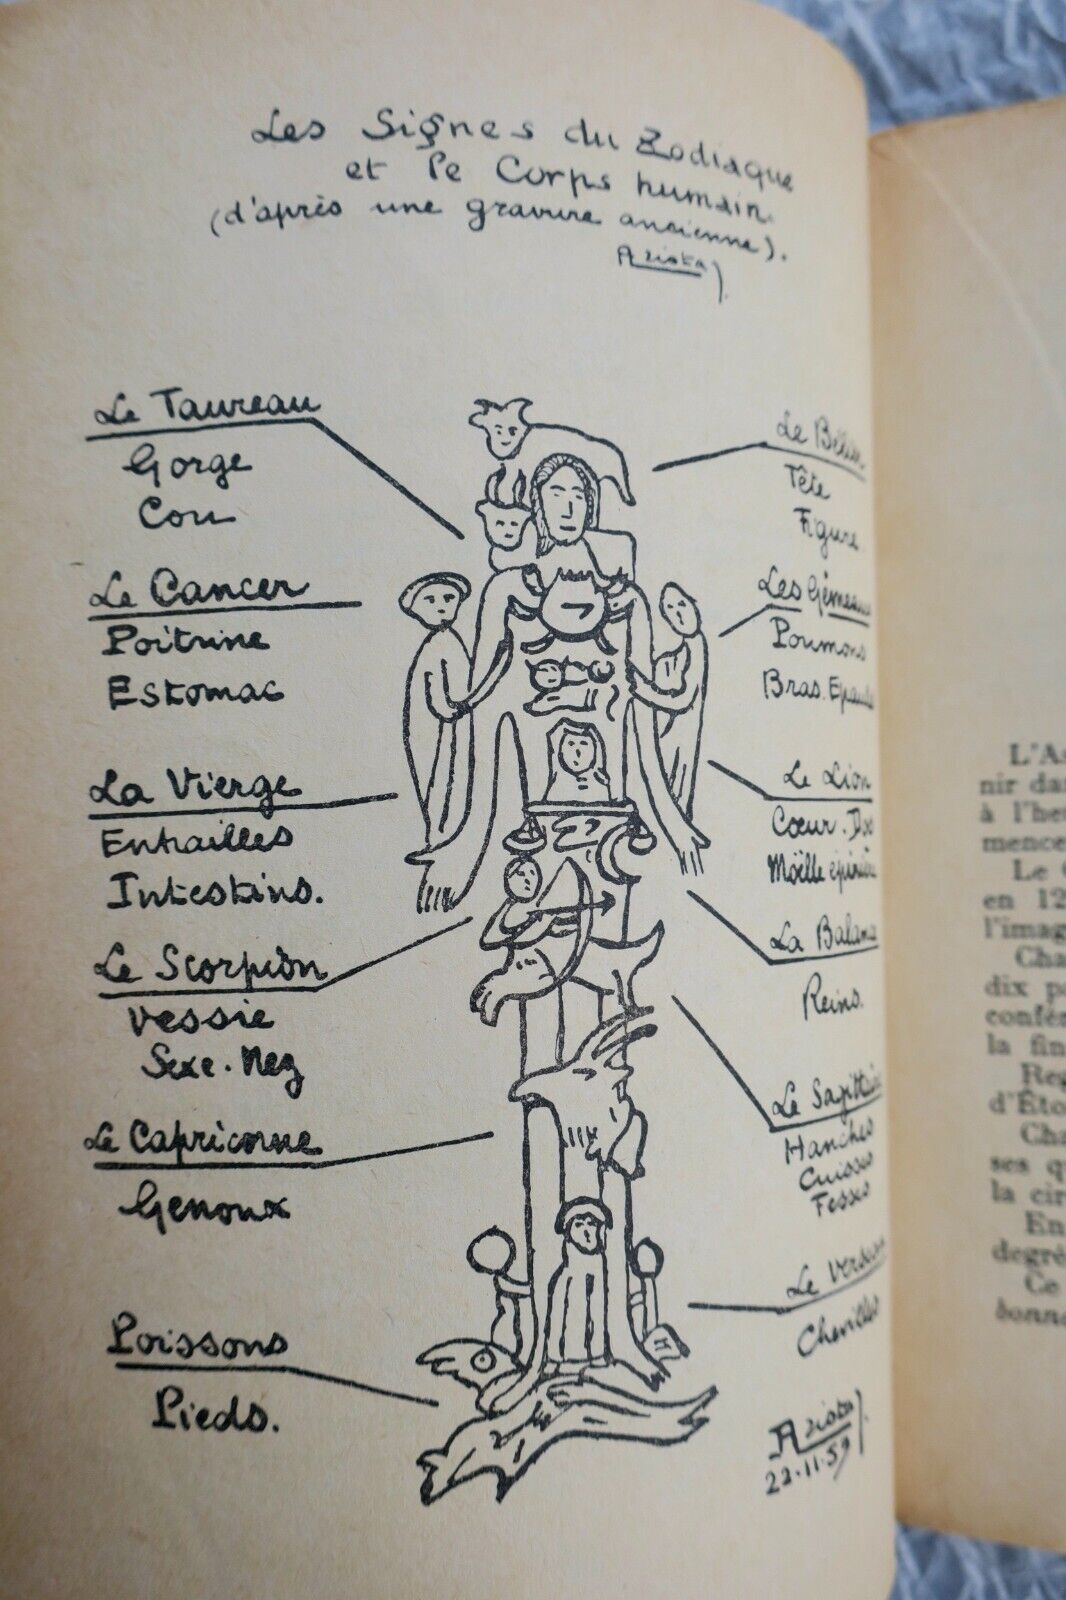 Les Signes du Zodiaque
et le Corps humain.
(d'après une gravure ancienne).
Le Taureau
Gorge
Cou
Le Cancer
Poitrine
Estomac
La Vierge
Entrailles
Intestins.
Le Scorpion
Vessie
Sexe. Nez
Le Capricorne
Genoux
Poissons
Pieds.
Le Bélier
Tête
Figure
Les Gémeaux
Poumons
Bras. Epaules
Le Lion
Cœur. Dos
Moëlle épinière
La Balance
Reins.
Le Sagittaire
Hanches
Cuisses
Fesses
Le Verseau
Chevilles
22.11.59
L'As
nir dan
à l'heu
mence
Le
en 12
l'imag
Cha
dix p
confér
la fin
Reg
d'Éto
Cha
ses qu
la cir
En
degré
Ce
bonne